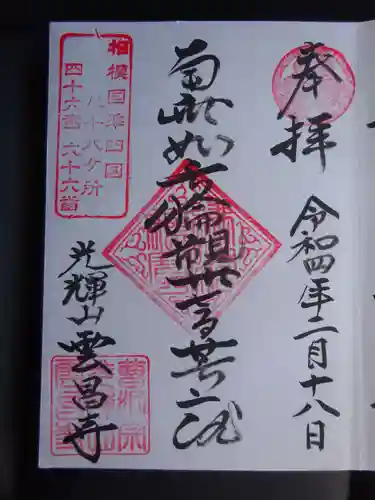 奉拝
令和四年二月十八日
南無如意輪観世音菩薩
相模国準四国
八十八ヶ所
四十六番 六十六番
光輝山 雲昌寺